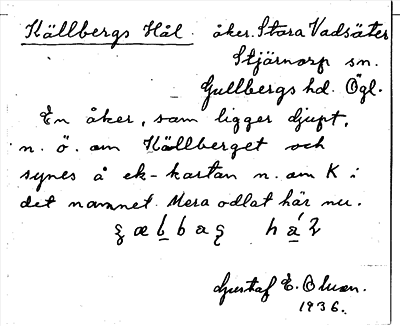 Källbergs Hål. åker. Stora Vadsäter
Stjärnorp sn.
Gullbergs hd. Ögl.
En åker, som ligger djupt,
n. ö. om Källberget och
synes å ek-kartan n. om K i
det namnet. Mera odlat här nu.
Gustaf E. Olson.
1936.